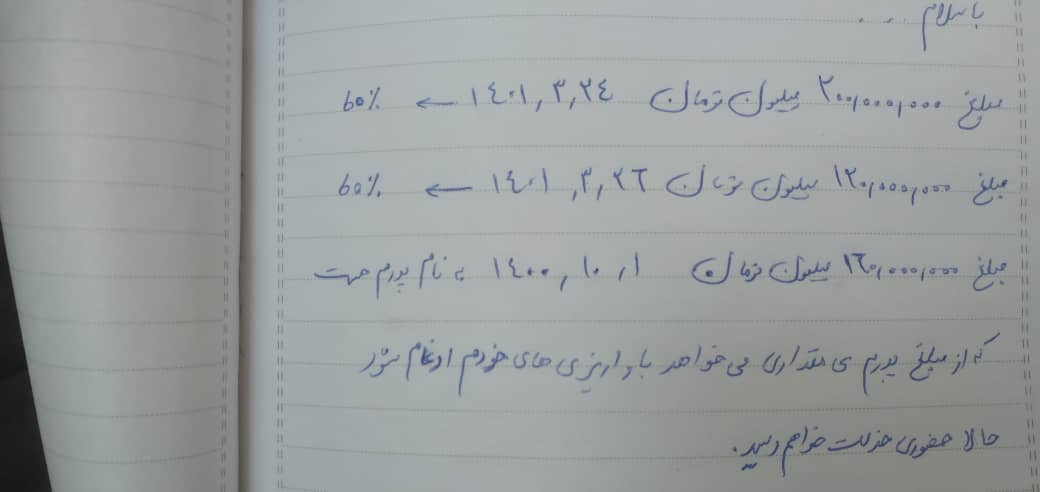 با سلام ...
مبلغ ۲۰۰,۰۰۰,۰۰۰ میلیون تومان ۱۴۰۱,۳,۲۴ ← ۶۵٪
مبلغ ۱۲۰,۰۰۰,۰۰۰ میلیون تومان ۱۴۰۱,۳,۲۶ ← ۶۵٪
مبلغ ۱۶۰,۰۰۰,۰۰۰ میلیون تومان ۱۴۰۰,۱۰,۱ به نام پدرم هست
که از مبلغ پدرم ی مقداری می خواهد با واریزی های خودم ادغام شود
حالا حضوری خدمت خواهم رسید.